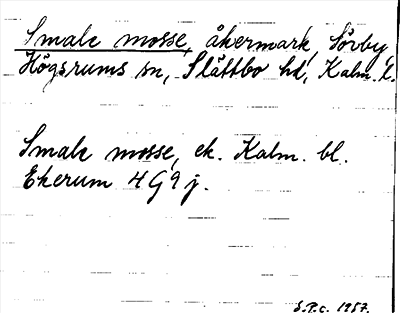 Smale mosse, åkermark, Sörby,
Högsrums sn, Slättbo hd, Kalm. l.
Smale mosse, ek. Kalm. bl.
Ekerum 4G9j.
S.P.c. 1957.